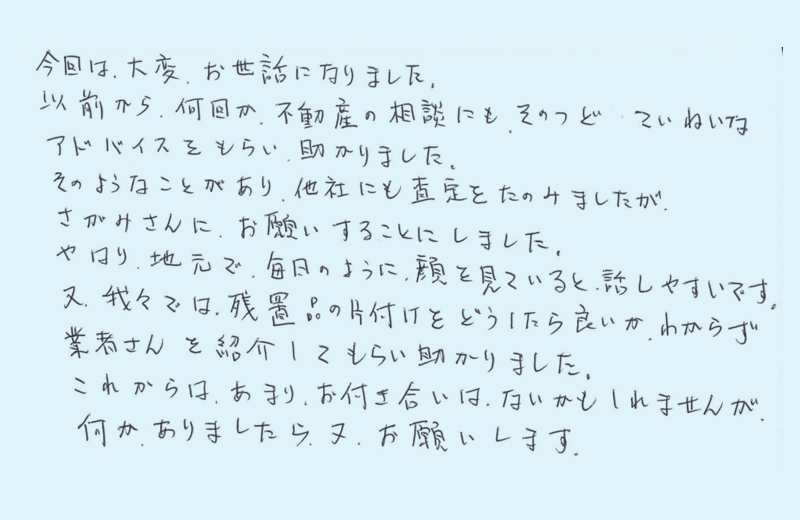 今回は、大変、お世話になりました。
以前から、何回か、不動産の相談にも、そのつど ていねいな
アドバイスをもらい、助かりました。
そのようなことがあり、他社にも査定をたのみましたが、
さがみさんに、お願いすることにしました。
やはり、地元で、毎日のように、顔を見ていると、話しやすいです。
又、我々では、残置品の片付けをどうしたら良いか、わからず
業者さんを紹介してもらい助かりました。
これからは、あまり、お付き合いは、ないかもしれませんが、
何か、ありましたら、又、お願いします。